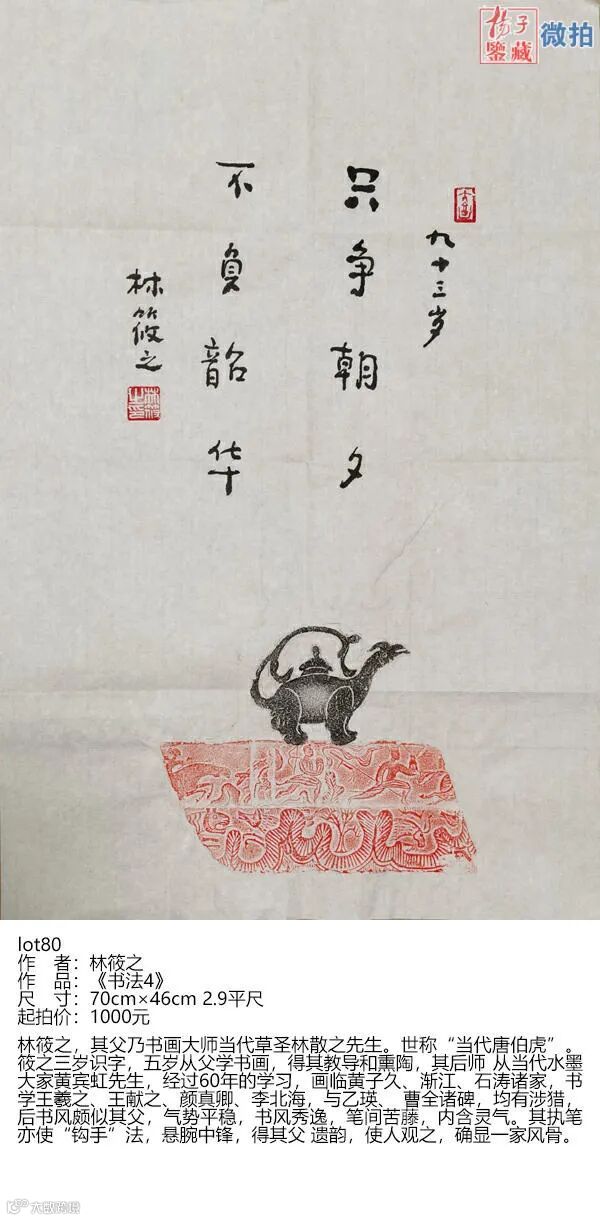 杨子
鉴藏
微拍
九十三岁
只争朝夕
不负韶华
林筱之
lot80
作 者：林筱之
作 品：《书法4》
尺 寸：70cm×46cm 2.9平尺
起拍价：1000元
林筱之，其父乃书画大师当代草圣林散之先生。世称“当代唐伯虎”。
筱之三岁识字，五岁从父学书画，得其教导和熏陶，其后师 从当代水墨
大家黄宾虹先生，经过60年的学习，画临黄子久、渐江、石涛诸家，书
学王羲之、王献之、颜真卿、李北海，与乙瑛、 曹全诸碑，均有涉猎，
后书风颇似其父，气势平稳，书风秀逸，笔间苦藤，内含灵气。其执笔
亦使“钩手”法，悬腕中锋，得其父 遗韵，使人观之，确显一家风骨。
大欧跨境